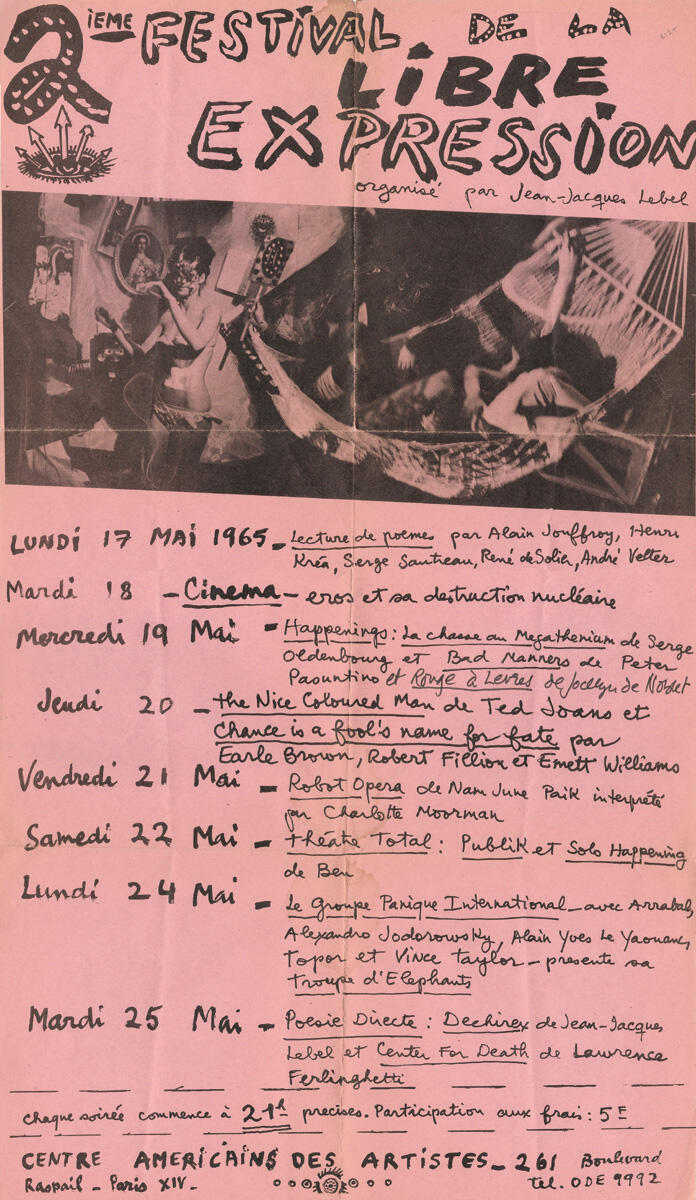 2IEME FESTIVAL DE LA
LIBRE
EXPRESSION
organisé par Jean-Jacques Lebel
LUNDI 17 MAI 1965 - Lecture de poemes par Alain Jouffroy, Henri
Kréa, Serge Sautreau, René de Solier, André Velter
Mardi 18 - Cinema - eros et sa destruction nucléaire
Mercredi 19 Mai - Happenings: La chasse au Megathenium de Serge
Oldenbourg et Bad Manners de Peter
Pasuntino et Rouge à Levres de Jocelyn de Noblet
Jeudi 20 - the Nice Coloured Man de Ted Joans et
Chance is a fool's name for fate par
Earle Brown, Robert Fillion et Emett Williams
Vendredi 21 Mai - Robot Opera de Nam June Paik interprété
par Charlotte Moorman
Samedi 22 Mai - théâtre Total: Publik et Solo Happening
de Ben
Lundi 24 Mai - Le Groupe Panique International - avec Arrabal,
Alexandro Jodorowsky, Alain Yves Le Yaouanc,
Topor et Vince Taylor - presente sa
troupe d'Elephants
Mardi 25 Mai - Poesie Directe: Dechirex de Jean-Jacques
Lebel et Center For Death de Lawrence
Ferlinghetti
chaque soirée commence à 21h precises. Participation aux frais: 5F
CENTRE AMERICAINS DES ARTISTES - 261 Boulevard
Raspail - Paris XIV - tel. ODE 9992